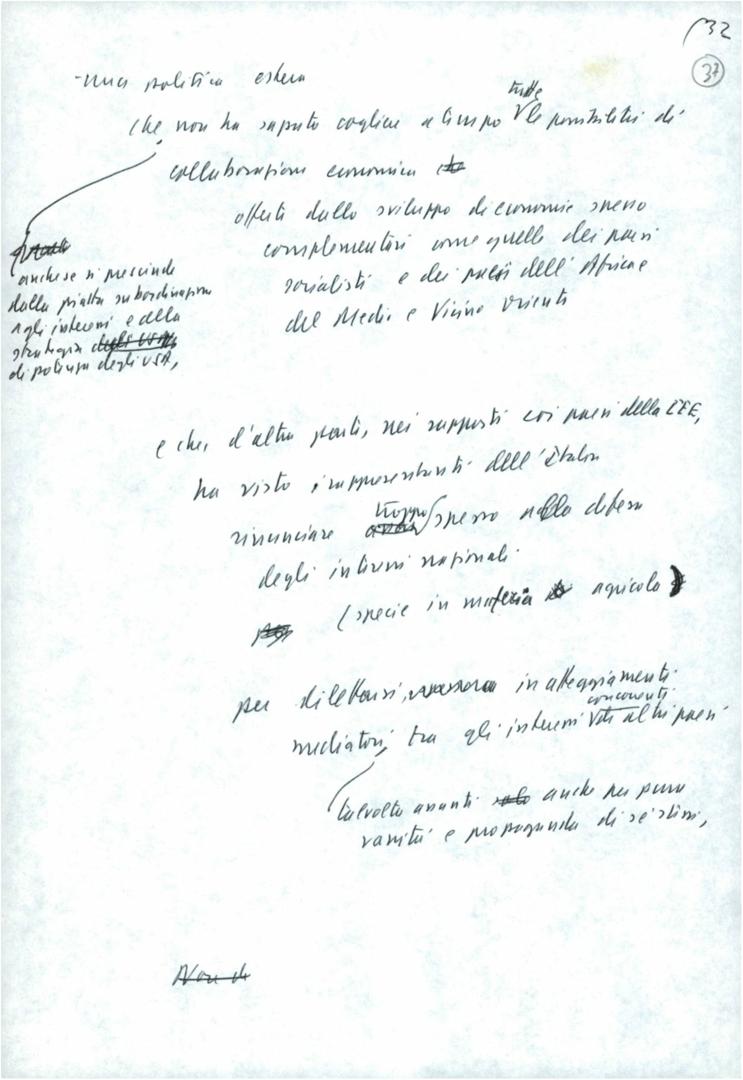 132
37
- una politica estera
che non ha saputo cogliere a tempo tutte le possibilità di
collaborazione economica
offerte dallo sviluppo di economie spesso
complementari come quelle dei paesi
socialisti e dei paesi dell'Africa e
del Medio e Vicino Oriente
anche se si prescinde
dalla piatta subordinazione
agli interessi e della
strategia degli USA
di potenza degli USA,
e che, d'altra parte, nei rapporti coi paesi della CEE,
ha visto i rappresentanti dell'Italia
rinunciare troppo spesso nella difesa
degli interessi nazionali
(specie in materia agricola)
per dilettarsi, in atteggiamenti
mediatori, tra gli interessi concorrenti di altri paesi
talvolta avanti solo anche per pura
vanità e propaganda di sé stessi,
Non di